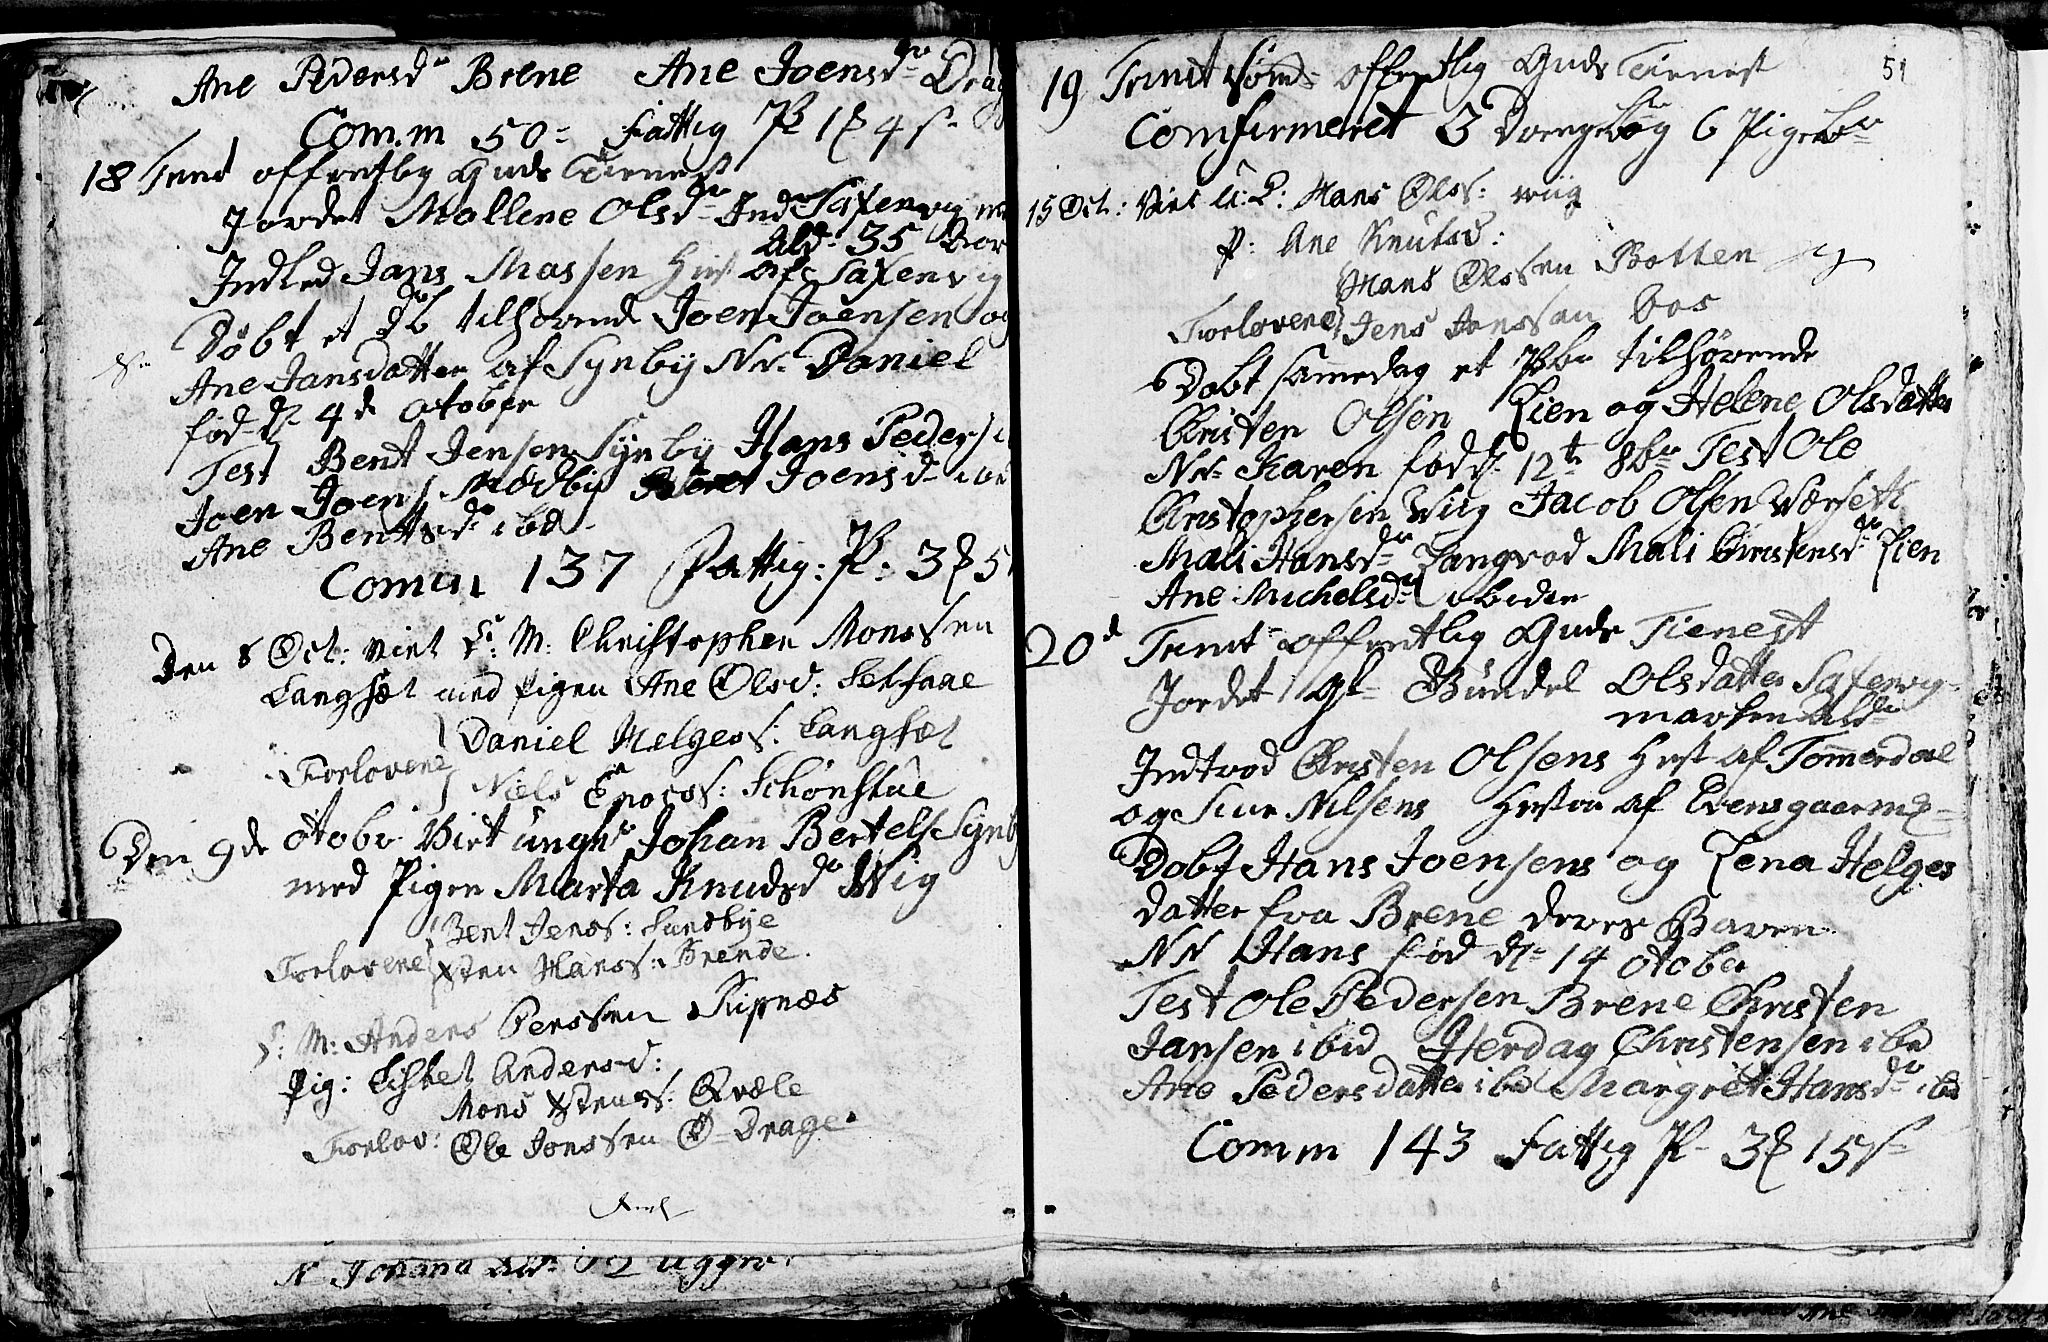 Ane Pedersdr Brene Ane Joensdr Drag
Com.m 50 = Fattig P 1 4 s
18 Trint offentlig Guds Tienest
Jordet Mallene Olsdr Ind Saxenvig
Ald: 35 Aar
Indled Jans Massen Hust af Saxenvig
Døbt et db tilhørende Joen Joensen og
Ane Jansdatter af Synby Nn Daniel
fød d 4de otober
Test Bent Jensen Synby Hans Peders
Joen Joens Nordby Beret Joensd ibd
Ane Bentsdr ibd
Comm 137 Fattig: P: 3 5
Den 8 Oct: viet S: M: Christopher Monssen
Langsæt med Pigen Ane Olsd: Setsaae
Forlovene Daniel Helges: Langsæt
Niels Enocs: Schönstue
Den 9de otobr Viet ungkr Johan Bertels Synb
med Pigen Marta Knudsdr Wig
Bent Jens: Sundbye
Forlovene Xsten Hans: Brende.
S: M: Anders Perssen Kipnæs
Pig: Lisbet Andersd:
Mons Xstens: Qvæle
Forlov: Ole Jonssen Ø-Drage.
N Johana Ald: 12 ugger
51
19 Trint Sønd= offentlig Guds Tienest
Comfirmeret 3 Drengebr og 6 Pigebr
15 Oct: Viet U: K: Hans Olss: Wiig
P: Ane Knutsd:
Hans Olssen Botten
Forlovene Jens Jonssen Bos
Døbt samedag et Pbr tilhørende
Christen Olsen Lien og Helene Olsdatter
Nn Karen fød d 12te 8br Test Ole
Christophersen Wiig Jacob Olsen Worseth
Mali Hansdr Langrod Mali Christensdr Lien
Ane Michelsdr ibiden
20d Trint= offentlig Guds Tienest
Jordet gl= Gundel Olsdatter Saxenvig
marken Ald
Indtrod Christen Olsens Hust af Tommerdal
og Siur Nilsens Hustro af Evensgaarm
Dobt Hans Joensens og Lena Helges
datter fra Brene deres Barn
NN Hans fød d 14 otober
Test Ole Pedersen Brene Christen
Jansen ibid Herdag Christensen ibd
Ane Pedersdatter ibd Margret Hansdr ibd
Comm 143 Fattig P 3 15 s